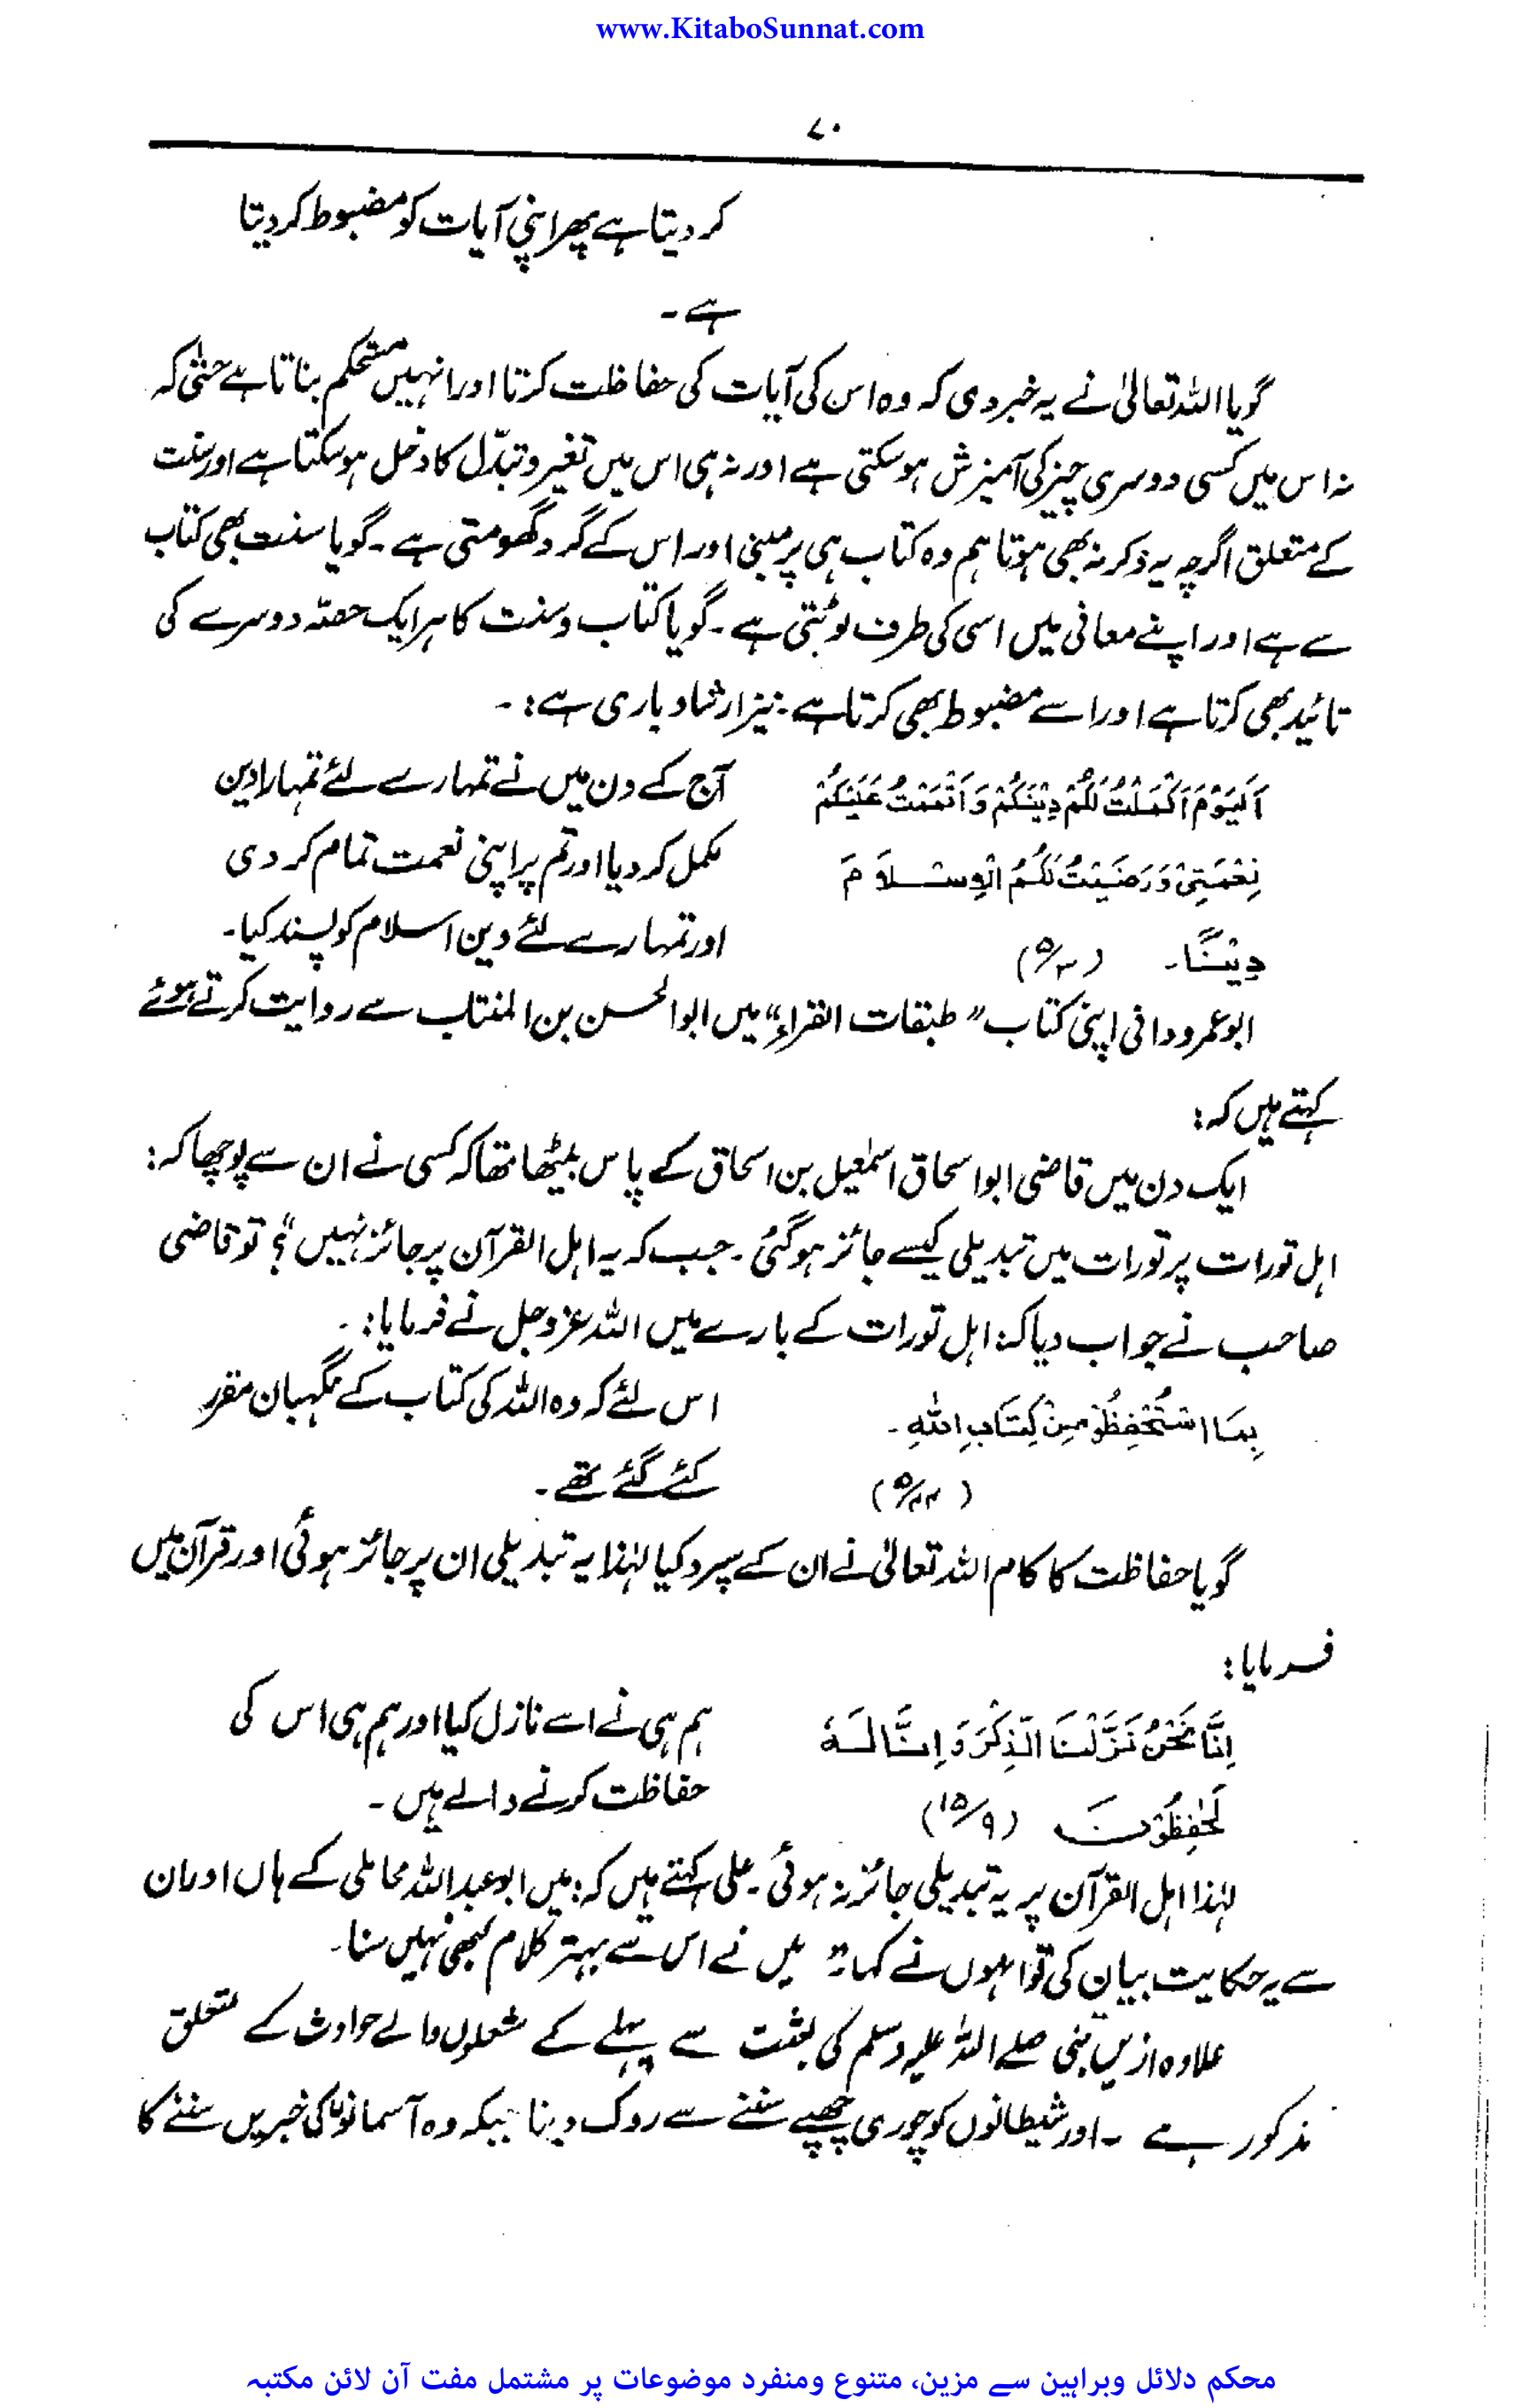 www.KitaboSunnat.com
۷۰
کر دیتا ہے پھر اپنی آیات کو مضبوط کر دیتا
ہے ۔
گویا اللہ تعالیٰ نے یہ خبر دی کہ وہ اس کی آیات کی حفاظت کرتا اور انہیں مستحکم بناتا ہے حتیٰ کہ
نہ اس میں کسی دوسری چیز کی آمیزش ہو سکتی ہے اور نہ ہی اس میں تغیر و تبدّل کا دخل ہو سکتا ہے اور سنت
کے متعلق اگرچہ یہ ذکر نہ بھی ہو تاہم وہ کتاب ہی پر مبنی اور اس کے گرد گھومتی ہے ۔ گویا سنت بھی کتاب
سے ہے اور اپنے معانی میں اسی کی طرف لوٹتی ہے ۔ گویا کتاب و سنت کا ہر ایک حصّہ دوسرے کی
تائید بھی کرتا ہے اور اسے مضبوط بھی کرتا ہے ۔ نیز ارشاد باری ہے : ۔
اَلْیَوْمَ اَکْمَلْتُ لَکُمْ دِیْنَکُمْ وَ اَتْمَمْتُ عَلَیْکُمْ
آج کے دن میں نے تمہارے لئے تمہارا دین
نِعْمَتِیْ وَ رَضَیْتُ لَکُمُ الْاِسْلَامَ
مکمل کر دیا اور تم پر اپنی نعمت تمام کر دی
دِیْنًا ۔ (۵/۳)
اور تمہارے لئے دین اسلام کو پسند کیا ۔
ابو عمرو دانی اپنی کتاب ”طبقات القراء“ میں ابو الحسن بن المنتاب سے روایت کرتے ہوئے
کہتے ہیں کہ :
ایک دن میں قاضی ابو اسحاق اسمٰعیل بن اسحاق کے پاس بیٹھا تھا کہ کسی نے ان سے پوچھا کہ :
اہل تورات پر تورات میں تبدیلی کیسے جائز ہو گئی ۔ جب کہ یہ اہل القرآن پر جائز نہیں“؟ تو قاضی
صاحب نے جواب دیا کہ : اہل تورات کے بارے میں اللہ عز و جل نے فرمایا : ۔
بِمَا اسْتُحْفِظُوْ مِنْ کِتَابِ اللّٰہِ ۔
اس لئے کہ وہ اللہ کی کتاب کے نگہبان مقرر
(۵/۴۴)
کئے گئے تھے ۔
گویا حفاظت کا کام اللہ تعالیٰ نے ان کے سپرد کیا لہٰذا یہ تبدیلی ان پر جائز ہوئی اور قرآن میں
فرمایا :
اِنَّا نَحْنُ نَزَّلْنَا الذِّکْرَ وَ اِنَّا لَہٗ
ہم ہی نے اسے نازل کیا اور ہم ہی اس کی
لَحٰفِظُوْنَ (۱۵/۹)
حفاظت کرنے والے ہیں ۔
لہٰذا اہل القرآن پر یہ تبدیلی جائز نہ ہوئی ۔ علی کہتے ہیں کہ : میں ابو عبد اللہ محاملی کے ہاں اور ان
سے یہ حکایت بیان کی تو انہوں نے کہا : ” میں نے اس سے بہتر کلام کبھی نہیں سنا ۔
علاوہ ازیں نبی صلے اللہ علیہ وسلم کی بعثت سے پہلے کے شعلوں والے حوادث کے متعلق
مذکور ہے ۔ اور شیطانوں کو چوری چھپے سننے سے روک دینا جبکہ وہ آسمانوں کی خبریں سننے کا
محکم دلائل وبراہین سے مزین، متنوع ومنفرد موضوعات پر مشتمل مفت آن لائن مکتبہ